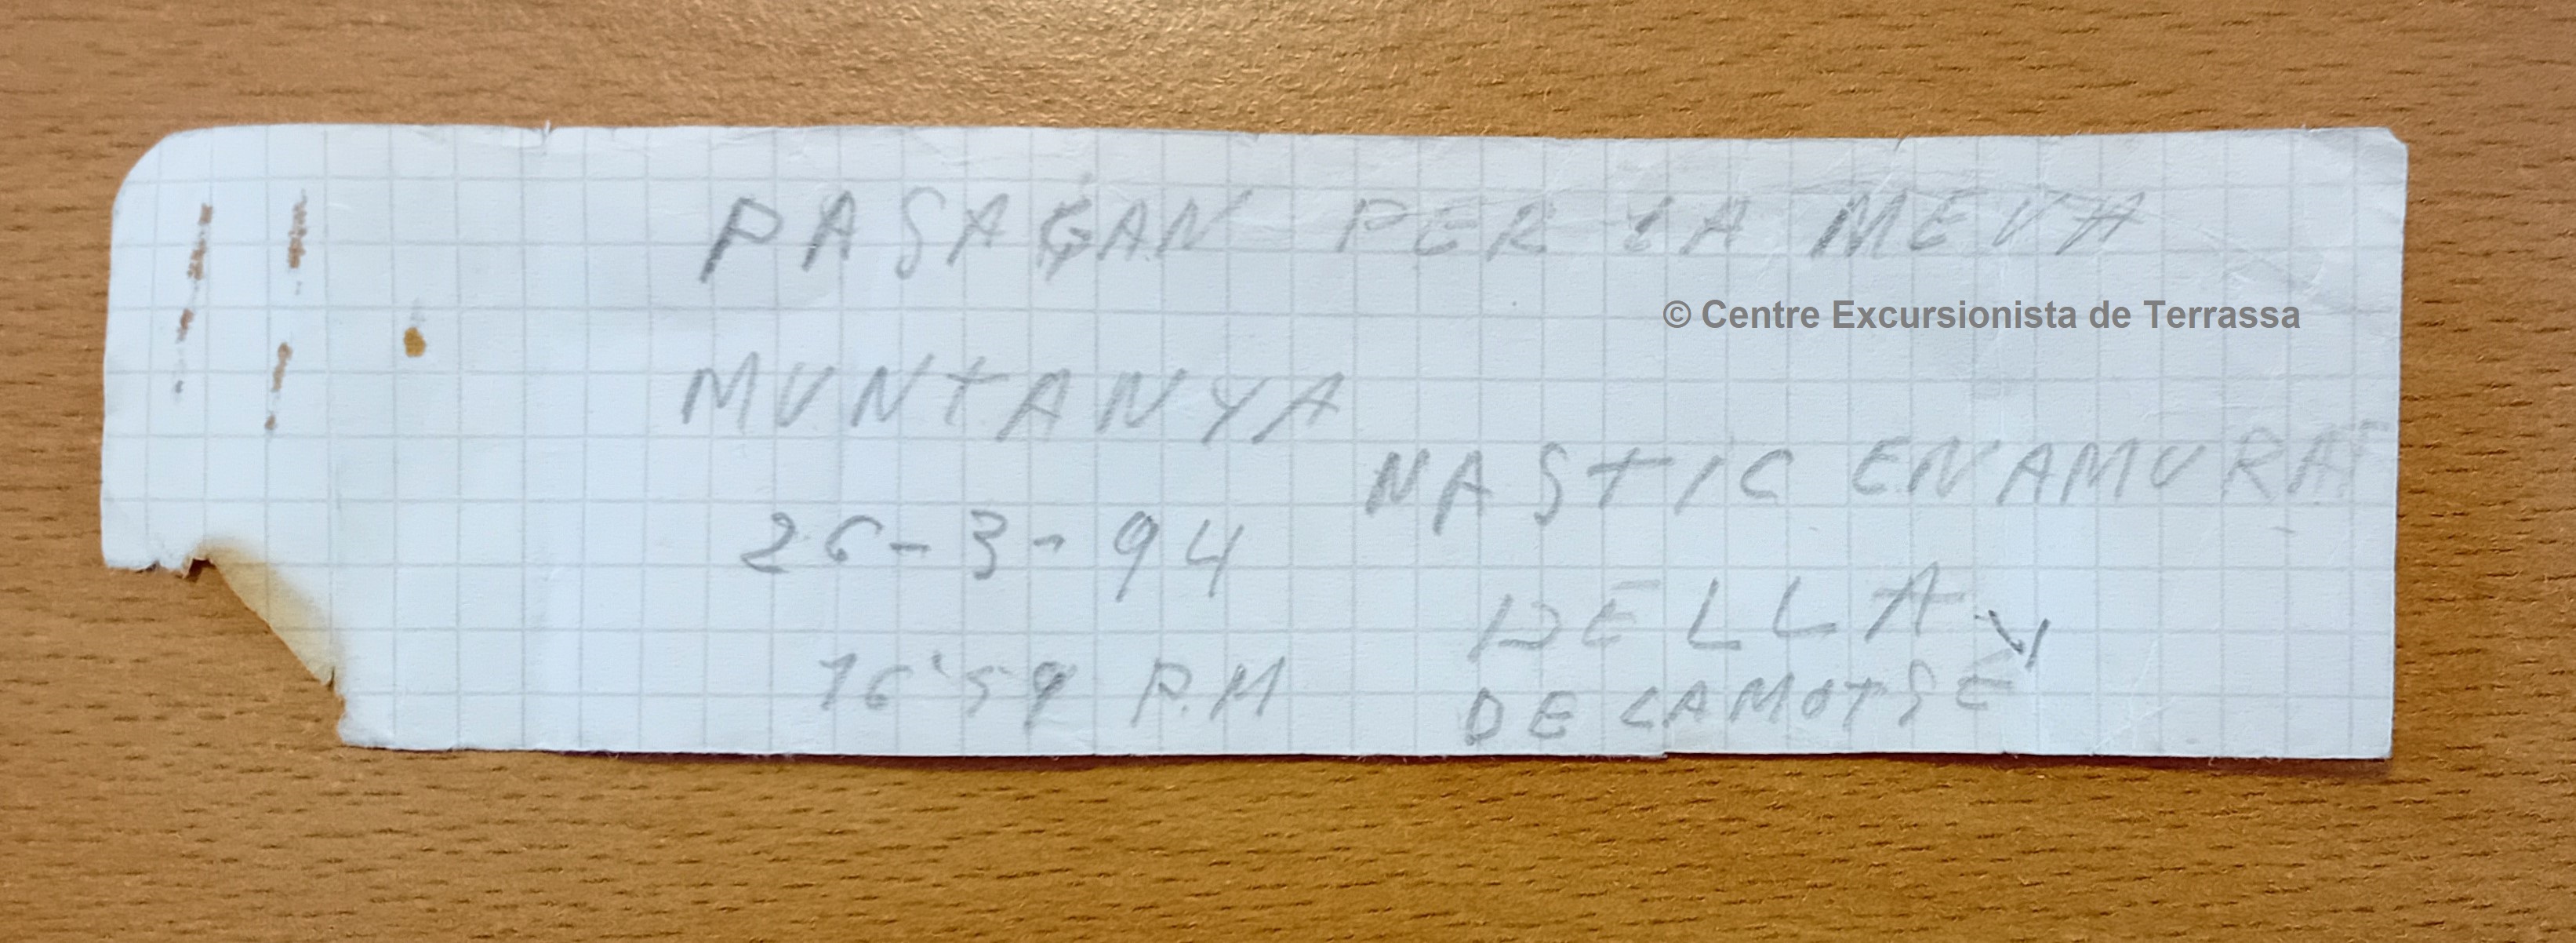 PASAGAN PER LA MEVA
© Centre Excursionista de Terrassa
MUNTANYA
NASTIC ENAMURAT
26-3-94
DELLA Y
16'59 P.M
DE LAMOTSE